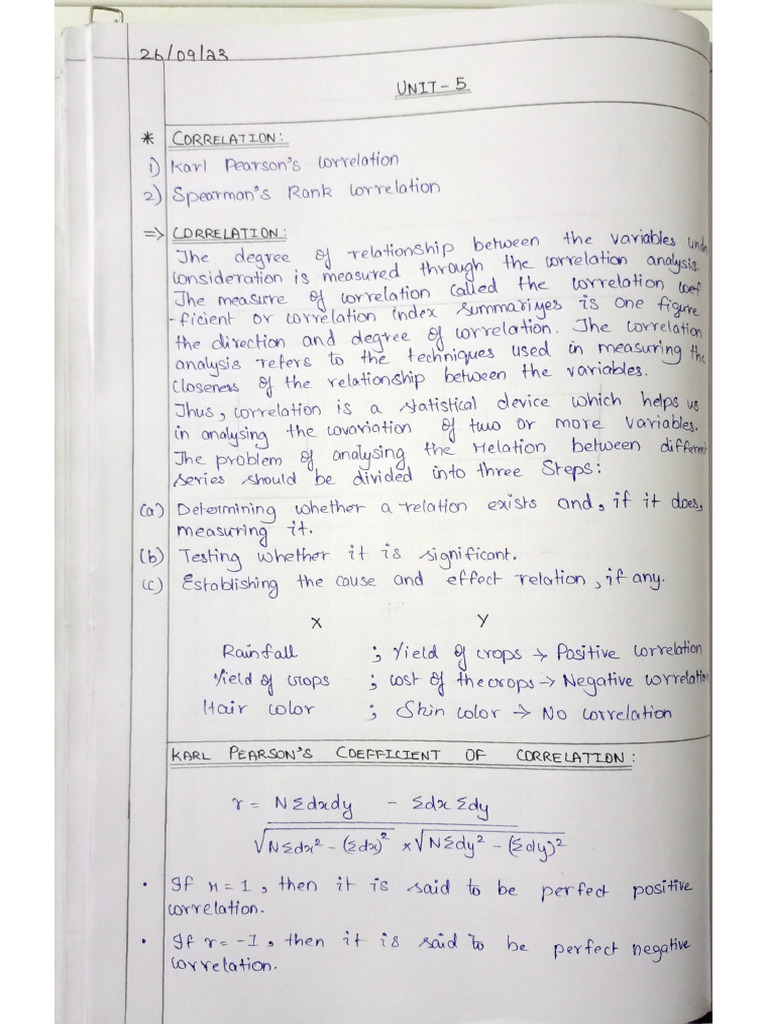 26/09/23
UNIT-5
* CORRELATION:
1) Karl Pearson's correlation
2) Spearman's Rank correlation
⇒ CORRELATION:
The degree of relationship between the variables unde
consideration is measured through the correlation analysis.
The measure of correlation called the correlation coef
-ficient or correlation index summariyes is one figure
the direction and degree of correlation. The correlation
analysis refers to the techniques used in measuring the
closeness of the relationship between the variables.
Thus, correlation is a statistical device which helps us
in analysing the covariation of two or more variables.
The problem of analysing the relation between different
series should be divided into three steps:
(a) Determining whether a relation exists and, if it does,
measuring it.
(b) Testing whether it is significant.
(c) Establishing the cause and effect relation, if any.
X Y
Rainfall ; Yield of crops → Positive correlation
Yield of crops ; cost of the crops → Negative correlation
Hair color ; Skin color → No correlation
KARL PEARSON'S COEFFICIENT OF CORRELATION:
r = NΣdxdy - Σdx Σdy
√NΣdx² - (Σdx)² × √NΣdy² - (Σdy)²
• If r = 1, then it is said to be perfect positive
correlation.
• If r = -1, then it is said to be perfect negative
correlation.